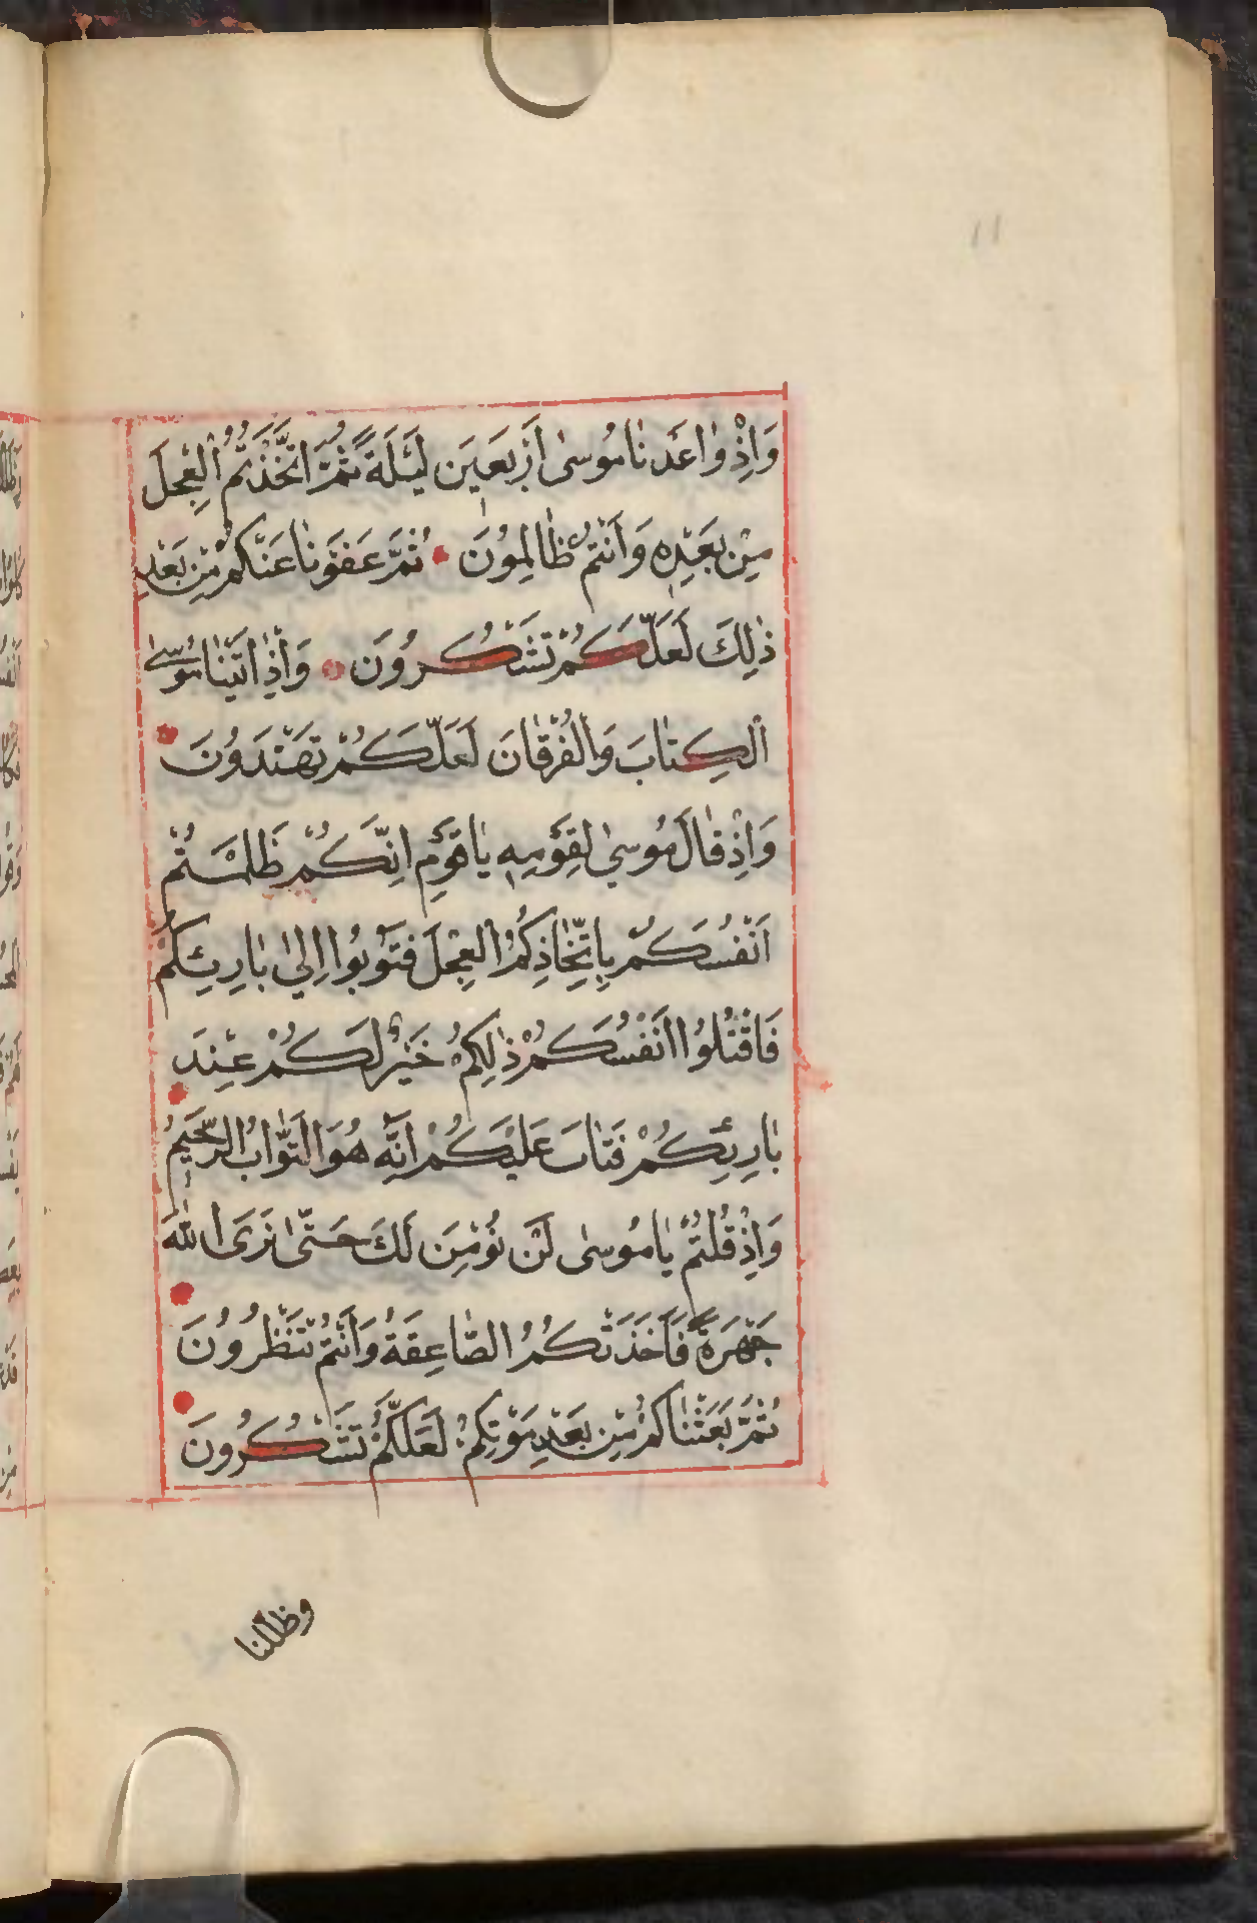 ١١
وَاِذْ وٰاعَدْنٰا مُوسىٰ اَرْبَعينَ لَيْلَةً ثُمَّ اتَّخَذْتُمُ الْعِجْلَ
مِنْ بَعْدِهٖ وَاَنْتُمْ ظٰالِمُونَ ثُمَّ عَفَوْنٰا عَنْكُمْ مِنْ بَعْدِ
ذٰلِكَ لَعَلَّكُمْ تَشْكُرُونَ وَاِذْ اٰتَيْنٰا مُوسىٰ
الْكِتٰابَ وَالْفُرْقٰانَ لَعَلَّكُمْ تَهْتَدُونَ
وَاِذْ قٰالَ مُوسىٰ لِقَوْمِهٖ يٰا قَوْمِ اِنَّكُمْ ظَلَمْتُمْ
اَنْفُسَكُمْ بِاتِّخٰاذِكُمُ الْعِجْلَ فَتُوبُوا اِلىٰ بٰارِئِكُمْ
فَاقْتُلُوا اَنْفُسَكُمْ ذٰلِكُمْ خَيْرٌ لَكُمْ عِنْدَ
بٰارِئِكُمْ فَتٰابَ عَلَيْكُمْ اِنَّهُ هُوَ التَّوّٰابُ الرَّحيمُ
وَاِذْ قُلْتُمْ يٰا مُوسىٰ لَنْ نُؤْمِنَ لَكَ حَتّىٰ نَرَى اللّٰهَ
جَهْرَةً فَاَخَذَتْكُمُ الصّٰاعِقَةُ وَاَنْتُمْ تَنْظُرُونَ
ثُمَّ بَعَثْنٰاكُمْ مِنْ بَعْدِ مَوْتِكُمْ لَعَلَّكُمْ تَشْكُرُونَ
وظللنا